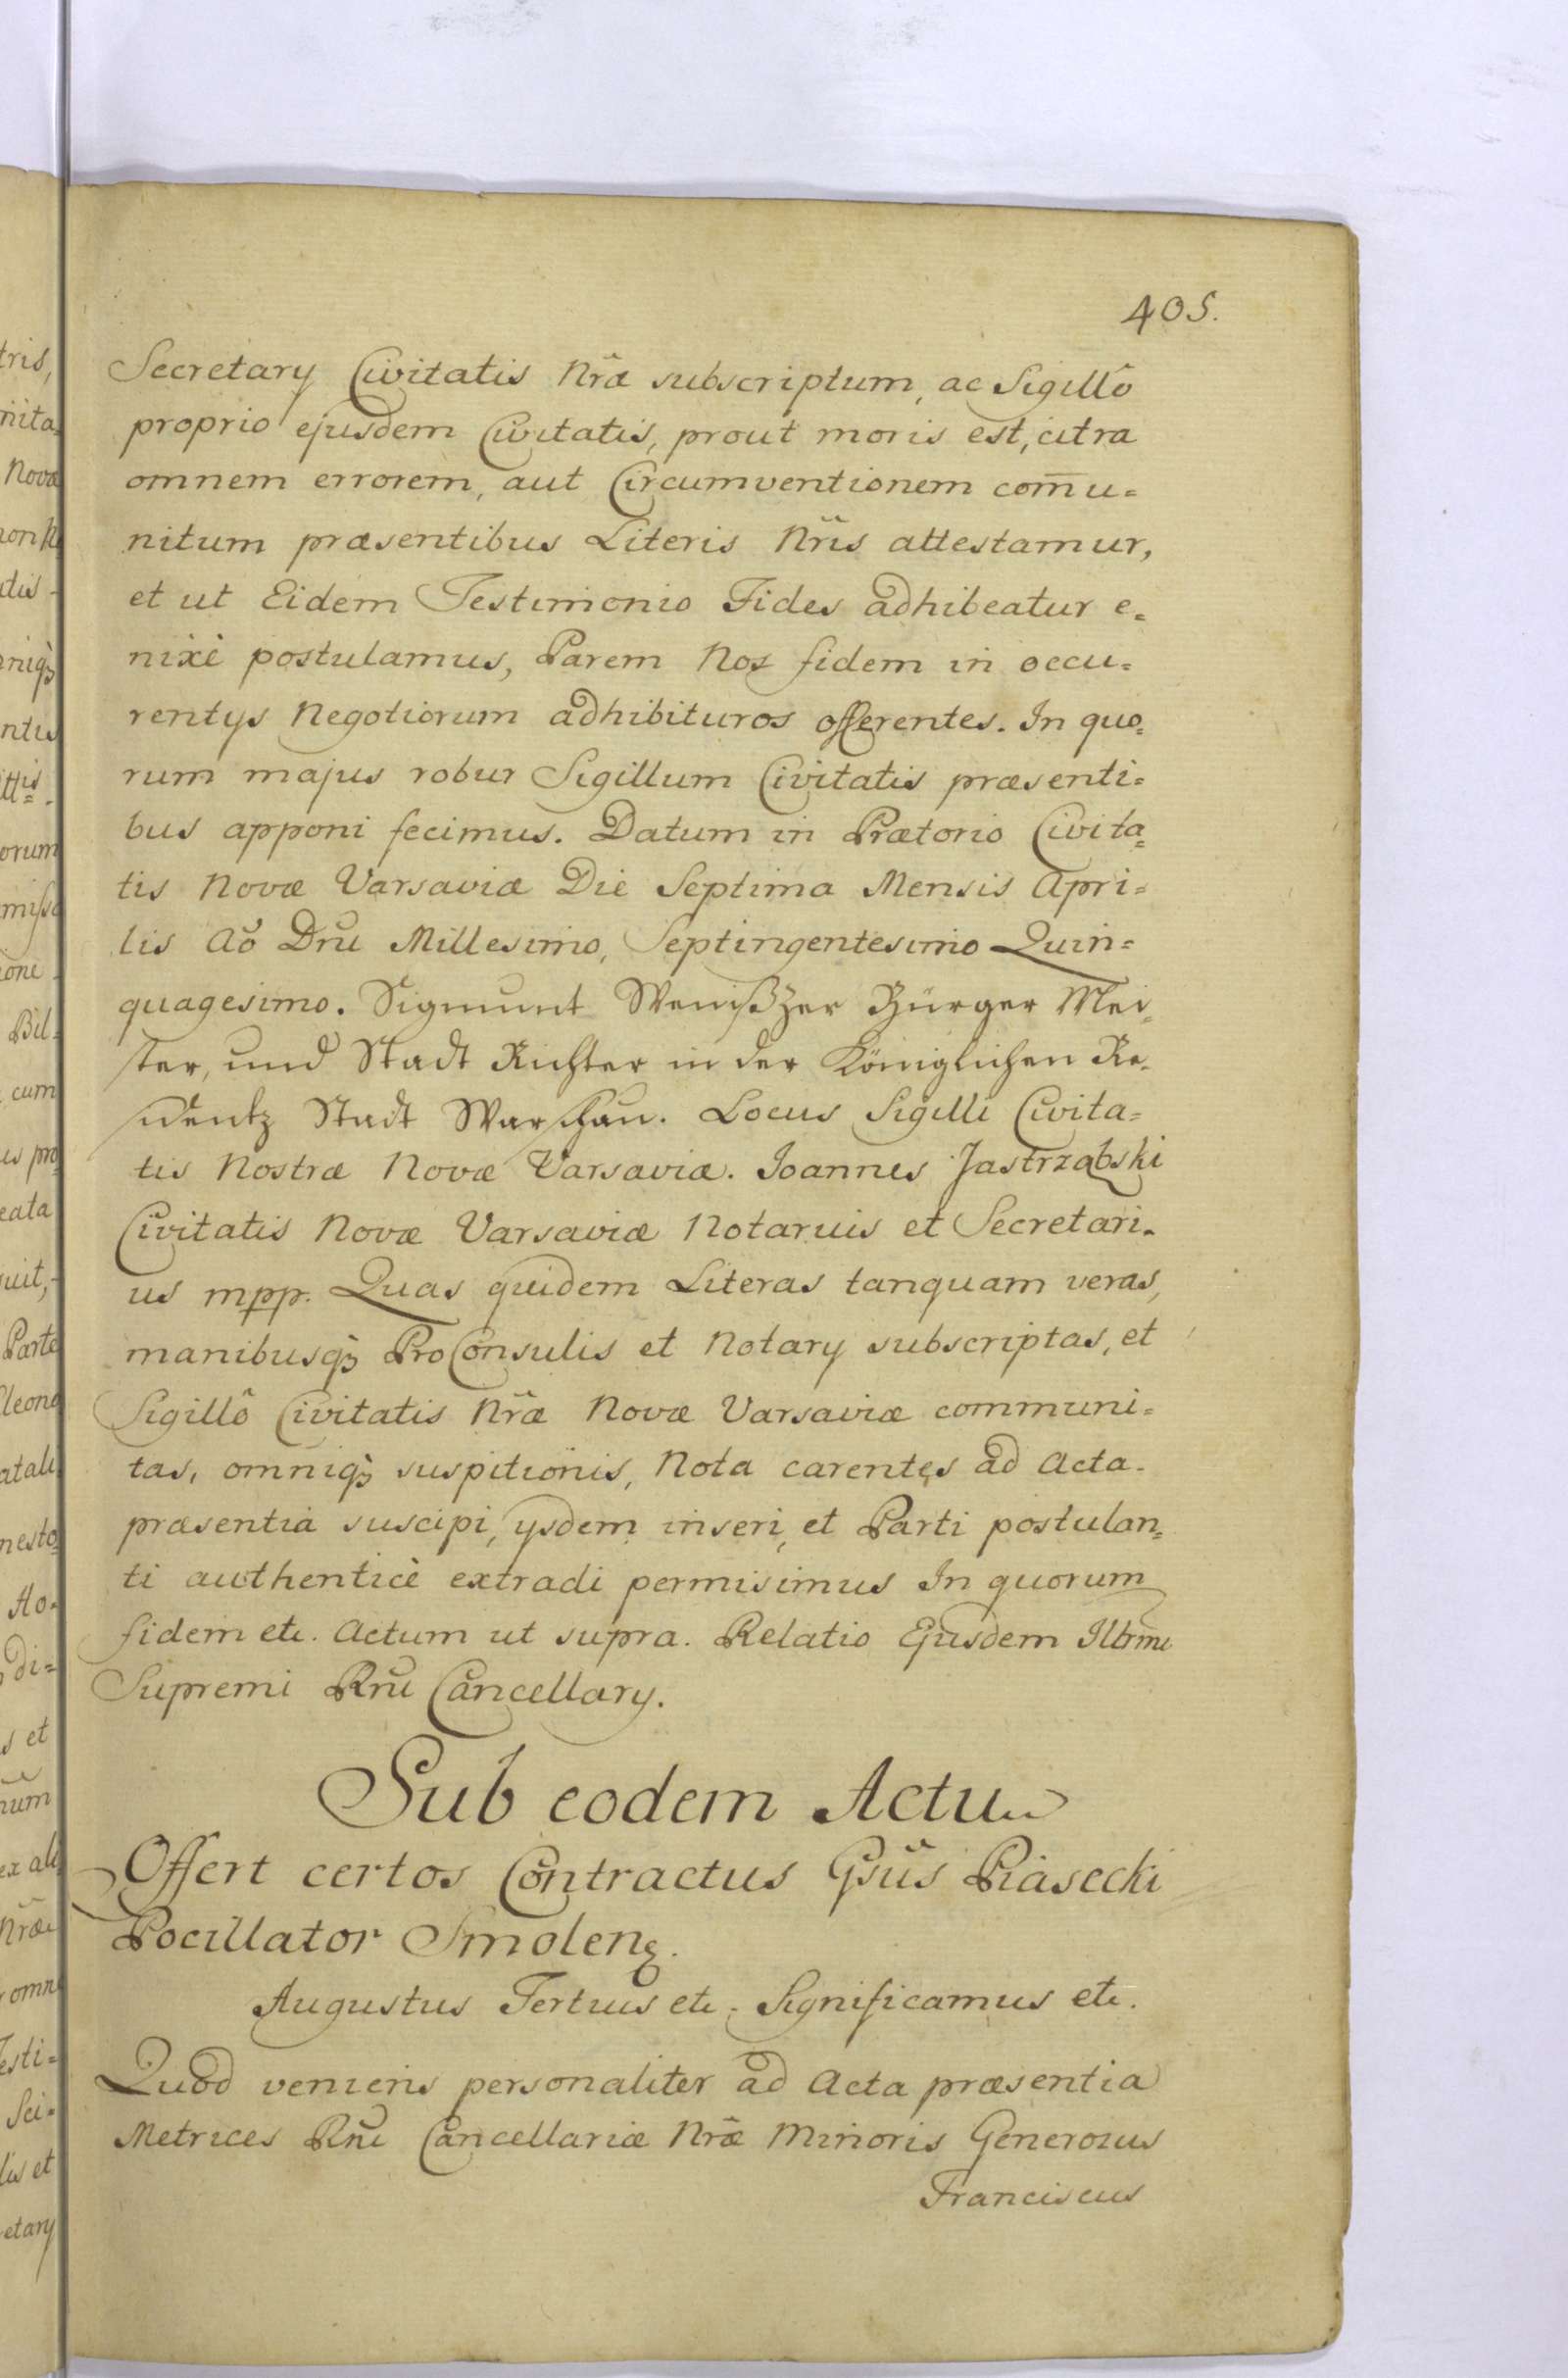 405.
Secretary Civitatis Nr̃æ subscriptum, ac Sigillô
proprio ejusdem Civitatis, prout moris est, citra
omnem errorem, aut Circumventionem com̄u=
nitum præsentibus Literis Nr̃is attestamur,
et ut Eidem Testimonio Fides adhibeatur e=
nixè postulamus, Parem Nos fidem in occu=
rentys Negotiorum adhibituros offerentes. In quo=
rum majus robur Sigillum Civitatis præsenti=
bus apponi fecimus. Datum in Prætorio Civita=
tis Novæ Varsaviæ Die Septima Mensis Apri=
lis Aõ Dñi Millesimo, Septingentesimo Quin=
quagesimo. Sigmunt Bürger Mei=
ster, und Stadt Richter in der Königlichen Re=
sidentz Stadt Warschau. Locus Sigilli Civita=
tis Nostræ Novæ Varsaviæ. Ioannes Jastrząbski
Civitatis Novæ Varsaviæ Notarius et Secretari=
us mpp. Quas quidem Literas tanquam veras,
manibusqꝫ ProConsulis et Notary subscriptas, et
Sigillô Civitatis Nr̃æ Novæ Varsaviæ communi=
tas, omniqꝫ suspitionis, Nota carentes ad Acta
præsentia suscipi, ysdem inseri, et Parti postulan=
ti authenticè extradi permisimus In quorum
fidem etc. Actum ut supra. Relatio Ejusdem Illrmi
Supremi Rñi Cancellary.
Sub eodem Actu
Offert certos Contractus Gsũs Piasecki
Pocillator Smolenꝫ.
Augustus Tertius etc. Significamus etc.
Quod veniens personaliter ad Acta præsentia
Metrices Rñi Cancellariæ Nr̃æ Minoris Generosus
Franciscus